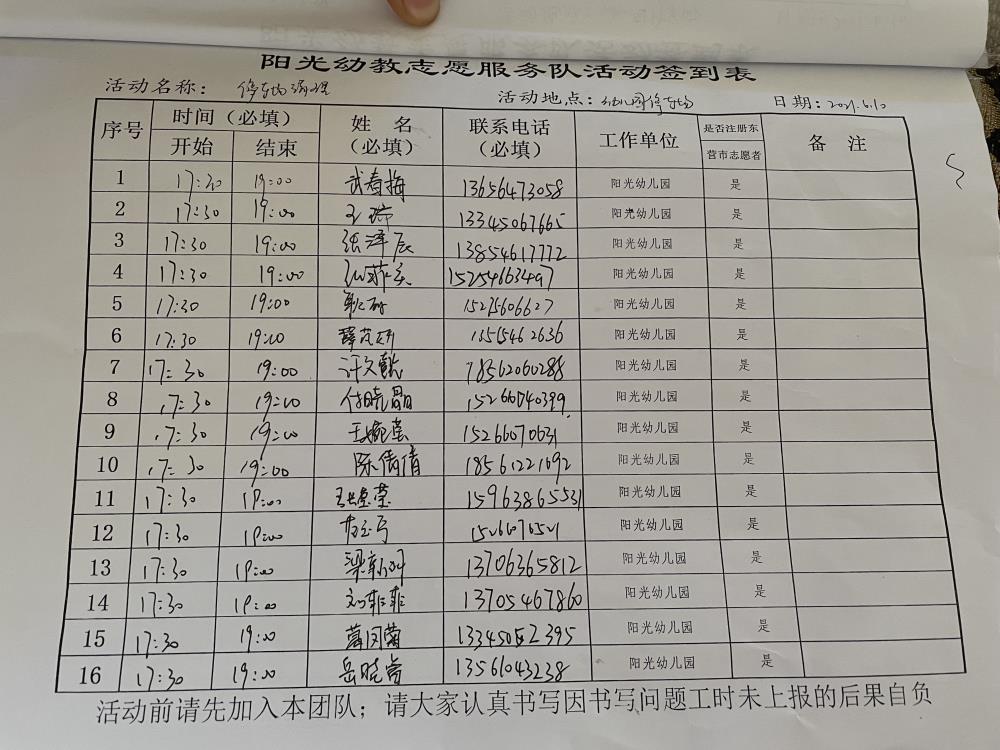 阳光幼教志愿服务队活动签到表
活动名称： 活动地点：幼儿园停车场 日期：2021.6.10
序号 时间（必填） 姓 名（必填） 联系电话（必填） 工作单位 是否注册东营市志愿者 备 注
开始 结束
1 17:30 19:00 武春梅 13656473058 阳光幼儿园 是
2 17:30 19:00 王瑞 13345067665 阳光幼儿园 是
3 17:30 19:00 张泽辰 13854617772 阳光幼儿园 是
4 17:30 19:00 15254663497 阳光幼儿园 是
5 17:30 19:00 阳光幼儿园 是
6 17:30 19:00 阳光幼儿园 是
7 17:30 19:00 许文毓 18562060288 阳光幼儿园 是
8 17:30 19:00 付晓晶 15266040399 阳光幼儿园 是
9 17:30 19:00 王婉莹 15266070631 阳光幼儿园 是
10 17:30 19:00 陈倩倩 18561221692 阳光幼儿园 是
11 17:30 19:00 15963865531 阳光幼儿园 是
12 17:30 19:00 阳光幼儿园 是
13 17:30 19:00 13706365812 阳光幼儿园 是
14 17:30 19:00 刘菲菲 13705467860 阳光幼儿园 是
15 17:30 19:00 13345052395 阳光幼儿园 是
16 17:30 19:00 岳晓嵩 13561043238 阳光幼儿园 是
活动前请先加入本团队；请大家认真书写因书写问题工时未上报的后果自负